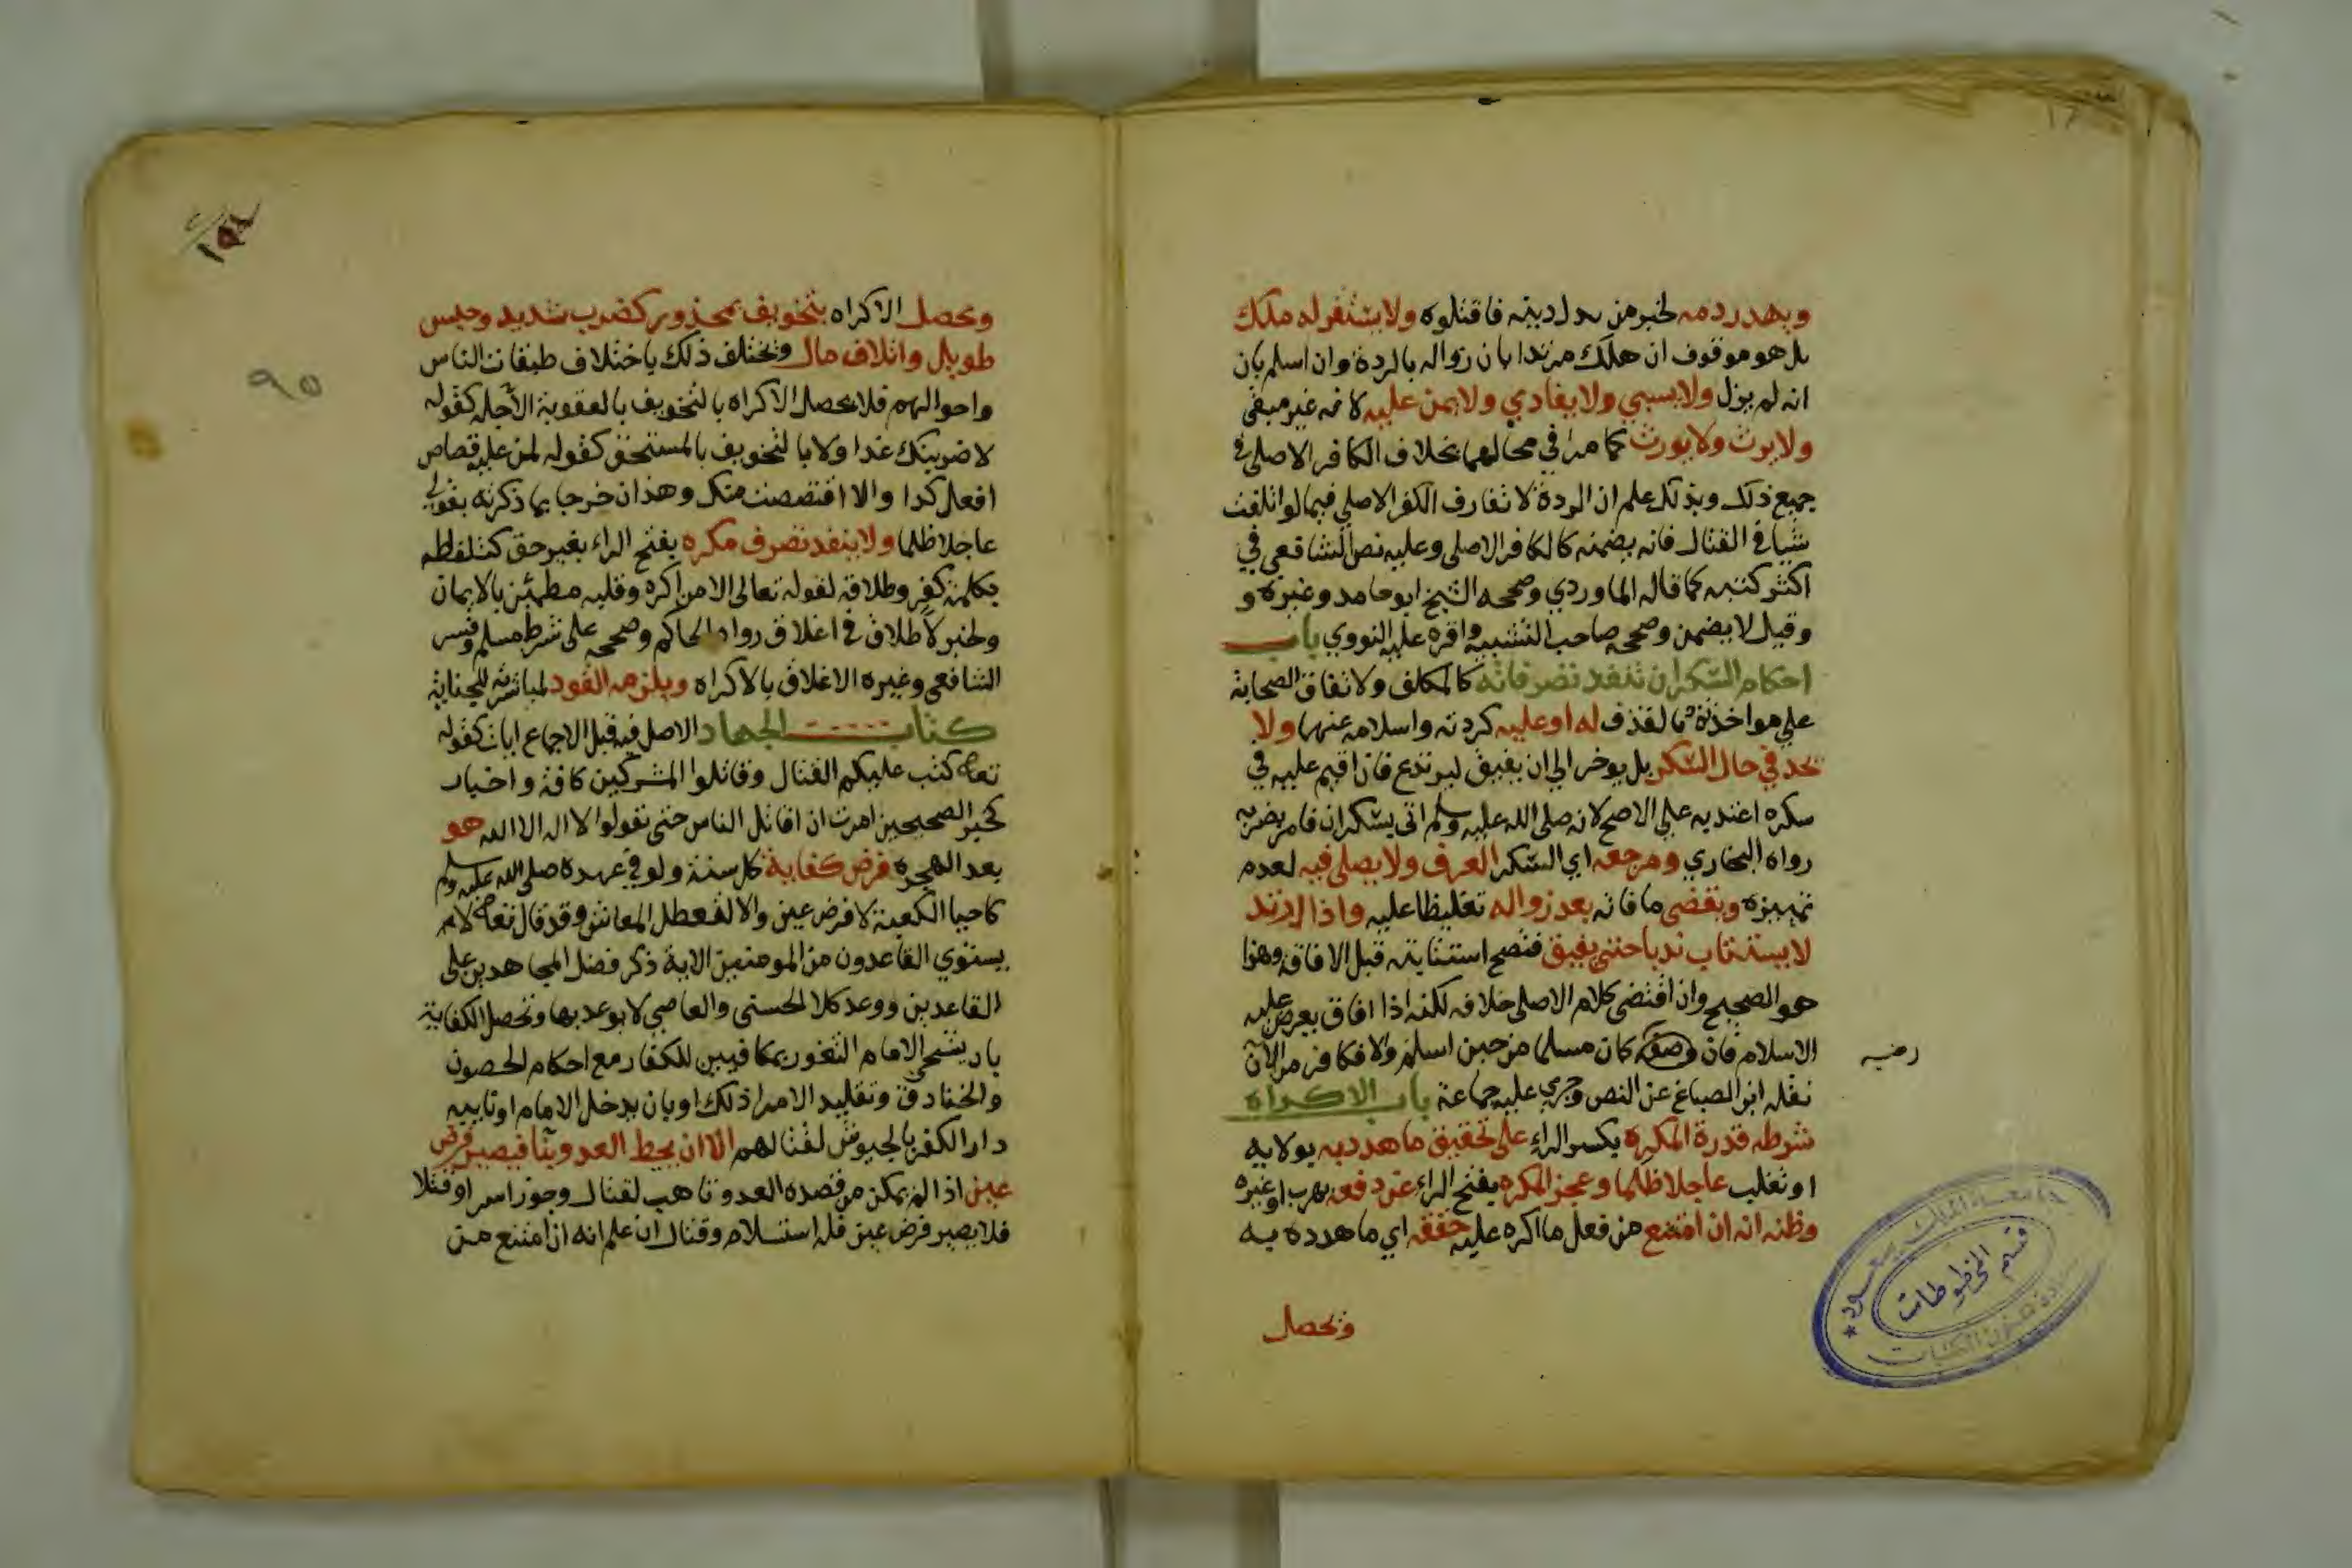 ويهدر دمه لخبر من بدل دينه فاقتلوه ولا يستقر له ملك
بل هو موقوف ان هلك مرتدا بان زواله بالردة وان اسلم بان
انه لم يزل ولا يسبي ولا يفادي ولا يمن عليه لانه غير مبقى
ولا يرث ولا يورث كما مر في محالهما بخلاف الكافر الاصلي في
جميع ذلك وبذلك علم ان الردة لا تفارق الكفر الاصلي فيما لو اتلفت
شيا في القتال فانه يضمنه كالكافر الاصلي وعليه نص الشافعي في
اكثر كتبه كما قاله الماوردي وصححه الشيخ ابو حامد وغيره و
وقيل لا يضمن وصححه صاحب التنبيه واقره عليه النووي باب
احكام السكران تنفذ تصرفاته كالمكلف ولاتفاق الصحابة
على مواخذته بالقذف له او عليه كردته واسلامه عنها ولا
يحد في حال السكر بل يوخر الي ان يفيق ليرتدع فان اقيم عليه في
سكره اعتد به على الاصح لانه صلى الله عليه وسلم اتى بسكران فامر بضربه
رواه البخاري ومرجعه اي السكر العرف ولا يصلى فيه لعدم
تمييزه ويقضى ما فاته بعد زواله تغليظا عليه واذا ارتد
لا يستتاب ندبا حتى يفيق فتصح استتابته قبل الافاقة وهذا
هو الصحيح وان اقتضى كلام الاصل خلافه لكنه اذا افاق يعرض عليه
الاسلام فان وصفه كان مسلما من حين اسلم والا فكافر من الآن
نقله ابن الصباغ عن النص وجري عليه جماعة باب الاكراه
شرطه قدرة المكره بكسر الراء على تحقيق ما هدد به بولاية
او تغلب عاجلا ظلما وعجز المكره بفتح الراء عن دفعه بهرب او غيره
وظنه انه ان امتنع من فعل ما اكره عليه حققه اي ما هدده به
ويحصل
قسم المخطوطات
ويحصل الاكراه بتخويف بمحذور كضرب شديد وحبس
طويل واتلاف مال ويختلف ذلك باختلاف طبقات الناس
واحوالهم فلا يحصل الاكراه بالتخويف بالعقوبة الآجله كقوله
لاضربنك غدا ولا بالتخويف بالمستحق كقوله لمن عليه قصاص
افعل كذا والا اقتصصت منك وهذان خرجا بما ذكرته بقولي
عاجلا ظلما ولا ينفذ تصرف مكره بفتح الراء بغير حق كتلفظه
بكلمة كفر وطلاقه لقوله تعالى الا من اكره وقلبه مطمئن بالايمان
ولخبر لا طلاق في اغلاق رواه الحاكم وصححه على شرط مسلم وفسر
الشافعي وغيره الاغلاق بالاكراه ويلزمه القود لمباشرته للجناية
كتاب الجهاد الاصل فيه قبل الاجماع ايات كقوله
تعالى كتب عليكم القتال وقاتلوا المشركين كافة واخبار
كخبر الصحيحين امرت ان اقاتل الناس حتى يقولوا لا اله الا الله هو
بعد الهجره فرض كفاية كل سنة ولو في عهده صلى الله عليه وسلم
كاحيا الكعبة لا فرض عين والا لتعطل المعاش وقد قال تعالى لا
يستوي القاعدون من المومنين الاية ذكر فضل المجاهدين على
القاعدين ووعد كلا الحسنى والعاصي لا يوعد بها وتحصل الكفاية
بان يشحن الامام الثغور بمكافيين للكفار مع احكام الحصون
والخنادق وتقليد الامرا ذلك او بان يدخل الامام او نايبه
دار الكفر بالجيوش لقتالهم الا ان يحط العدو بنا فيصير فرض
عين اذا لم يمكن من قصده العدو تاهب لقتال وجوز اسرا وقتلا
فلا يصير فرض عين فله استسلام وقتال ان علم انه ان امتنع من
٩٥